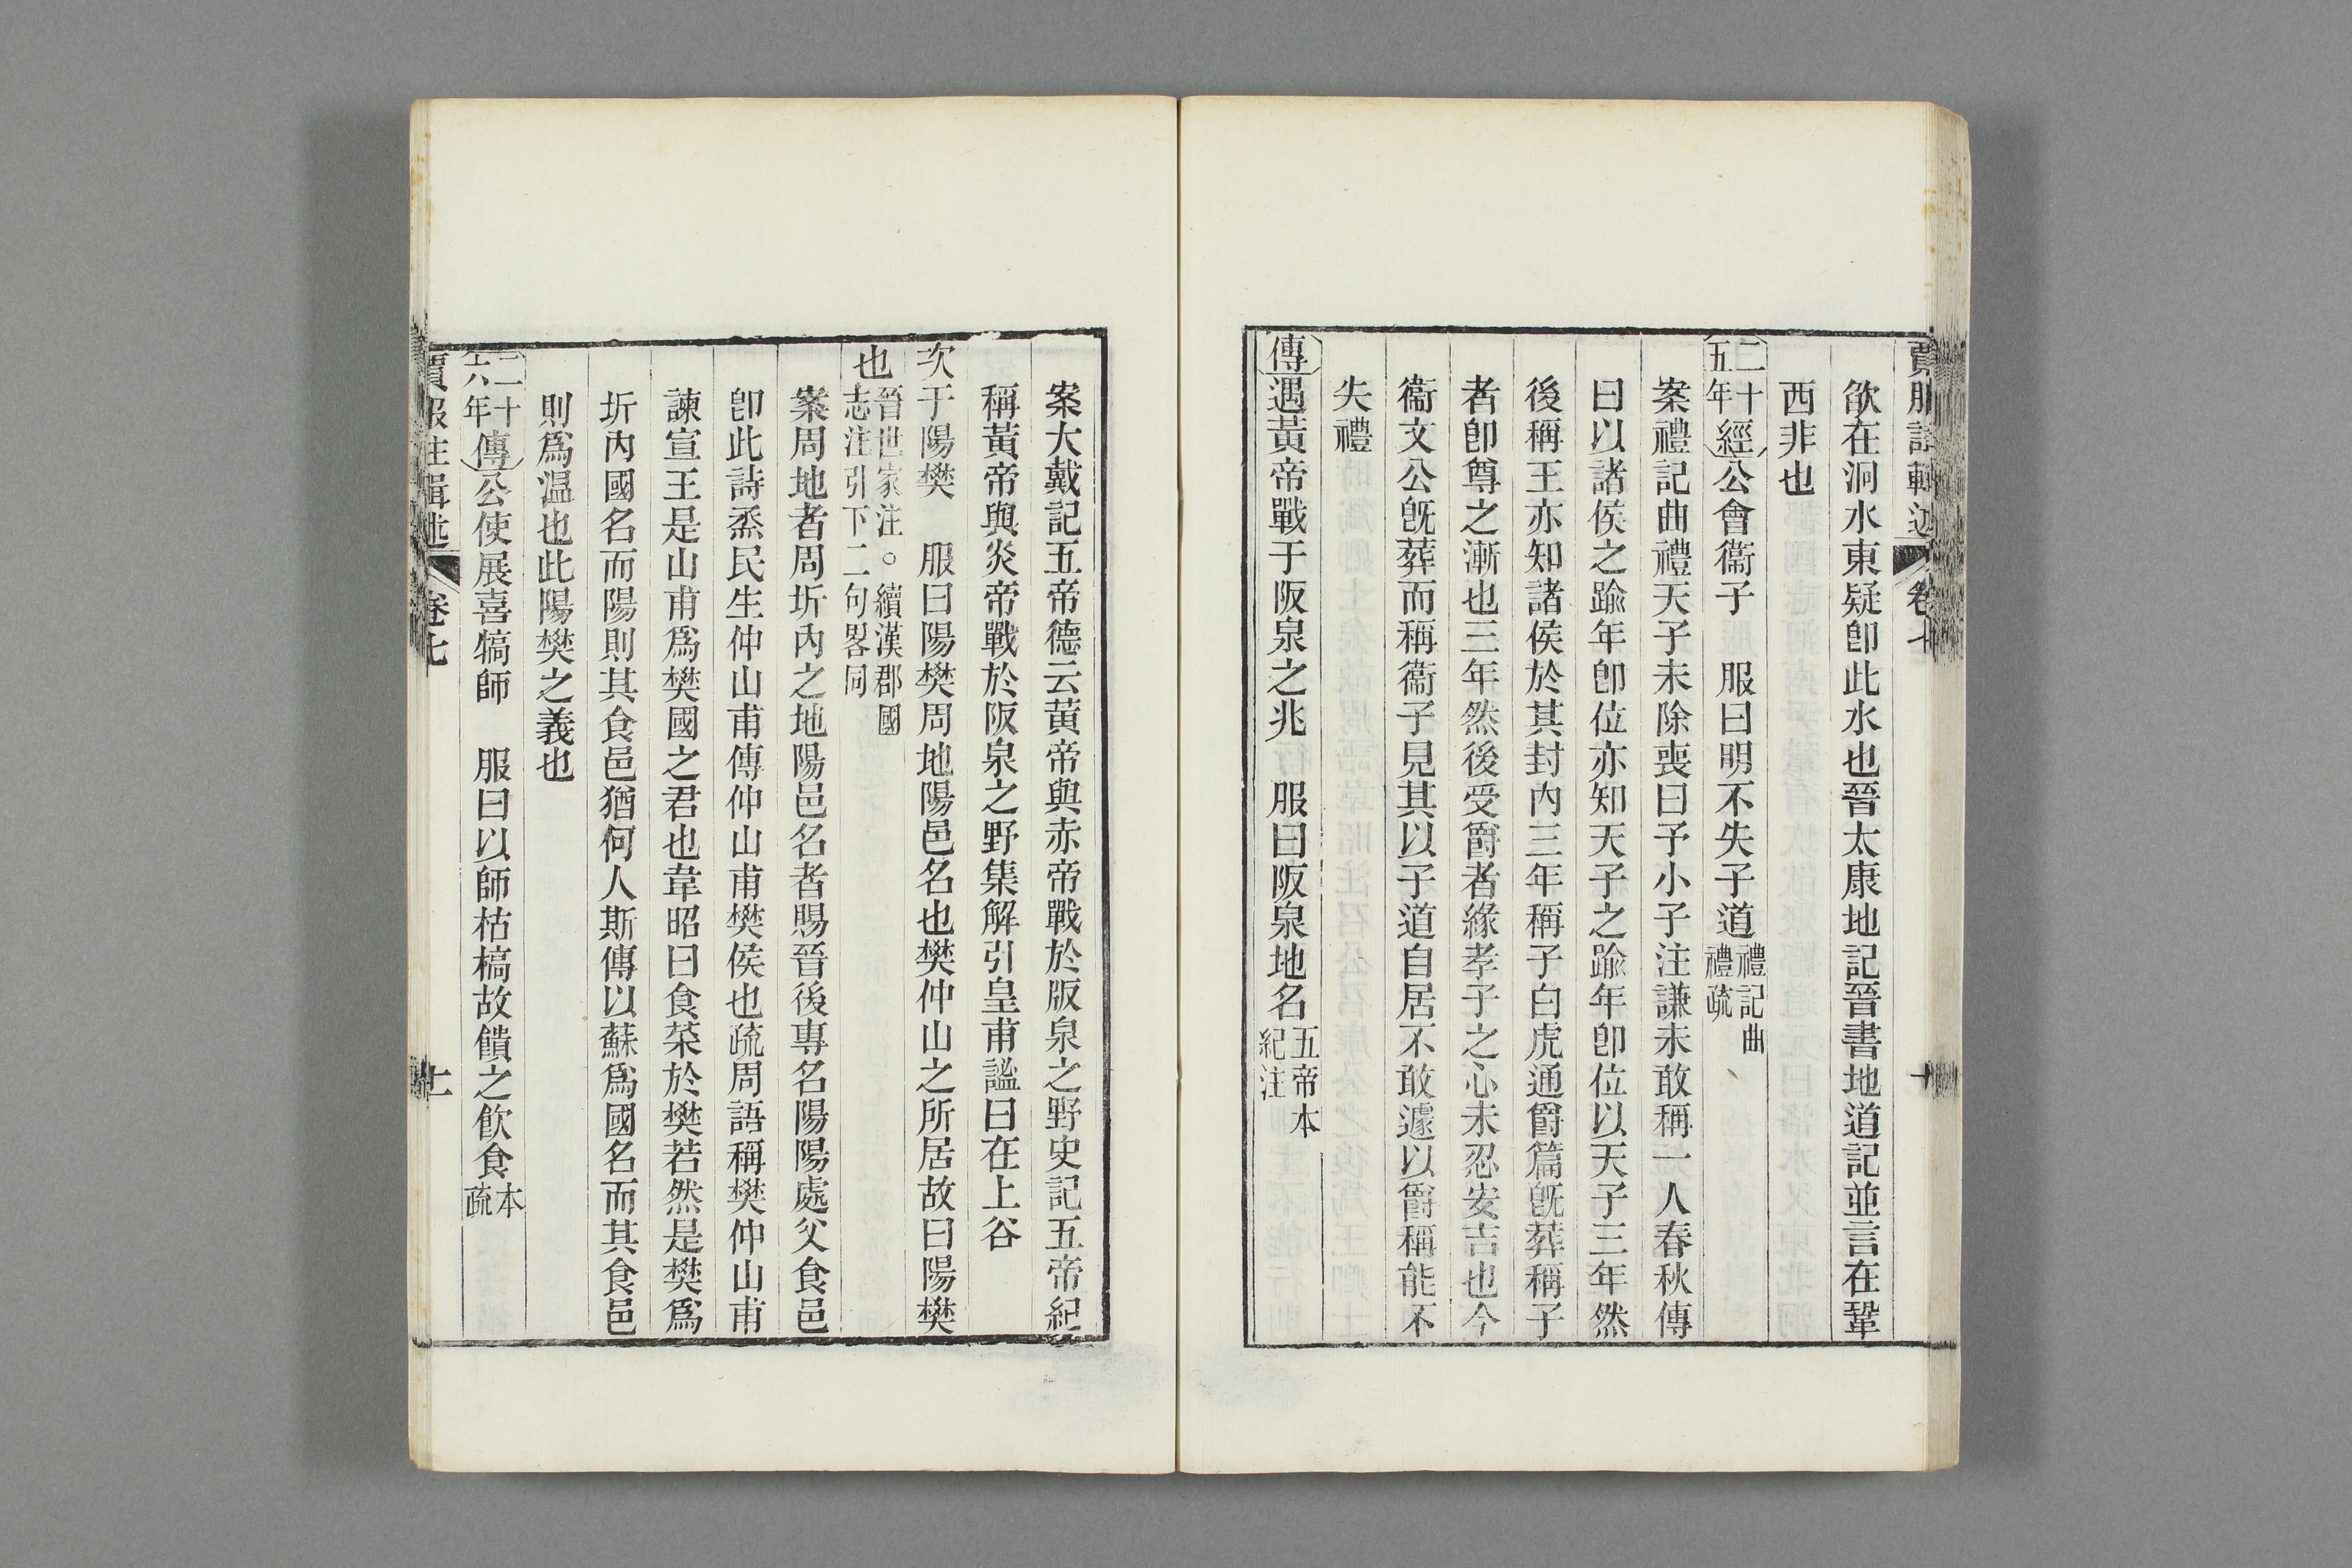 賈服註輯述 卷七
欲在洞水東疑卽此水也晉太康地記晉書地道記並言在鞏
西非也
二十五年經公會衞子 服曰明不失子道禮記曲禮疏
案禮記曲禮天子未除喪曰予小子注謙未敢稱一人春秋傳
曰以諸侯之踰年卽位亦知天子之踰年卽位以天子三年然
後稱王亦知諸侯於其封內三年稱子白虎通爵篇旣葬稱子
者卽尊之漸也三年然後受爵者緣孝子之心未忍安吉也今
衞文公旣葬而稱衞子見其以子道自居不敢遽以爵稱能不
失禮
傳遇黃帝戰于阪泉之兆 服曰阪泉地名五帝本紀注
案大戴記五帝德云黃帝與赤帝戰於版泉之野史記五帝紀
稱黃帝與炎帝戰於阪泉之野集解引皇甫謐曰在上谷
次于陽樊 服曰陽樊周地陽邑名也樊仲山之所居故曰陽樊
也晉世家注○續漢郡國志注引下二句畧同
案周地者周圻內之地陽邑名者賜晉後專名陽陽處父食邑
卽此詩烝民生仲山甫傳仲山甫樊侯也疏周語稱樊仲山甫
諫宣王是山甫爲樊國之君也韋昭曰食菜於樊若然是樊爲
圻內國名而陽則其食邑猶何人斯傳以蘇爲國名而其食邑
則爲温也此陽樊之義也
二十六年傳公使展喜犒師 服曰以師枯槁故饋之飲食本疏
賈服註輯述 卷七